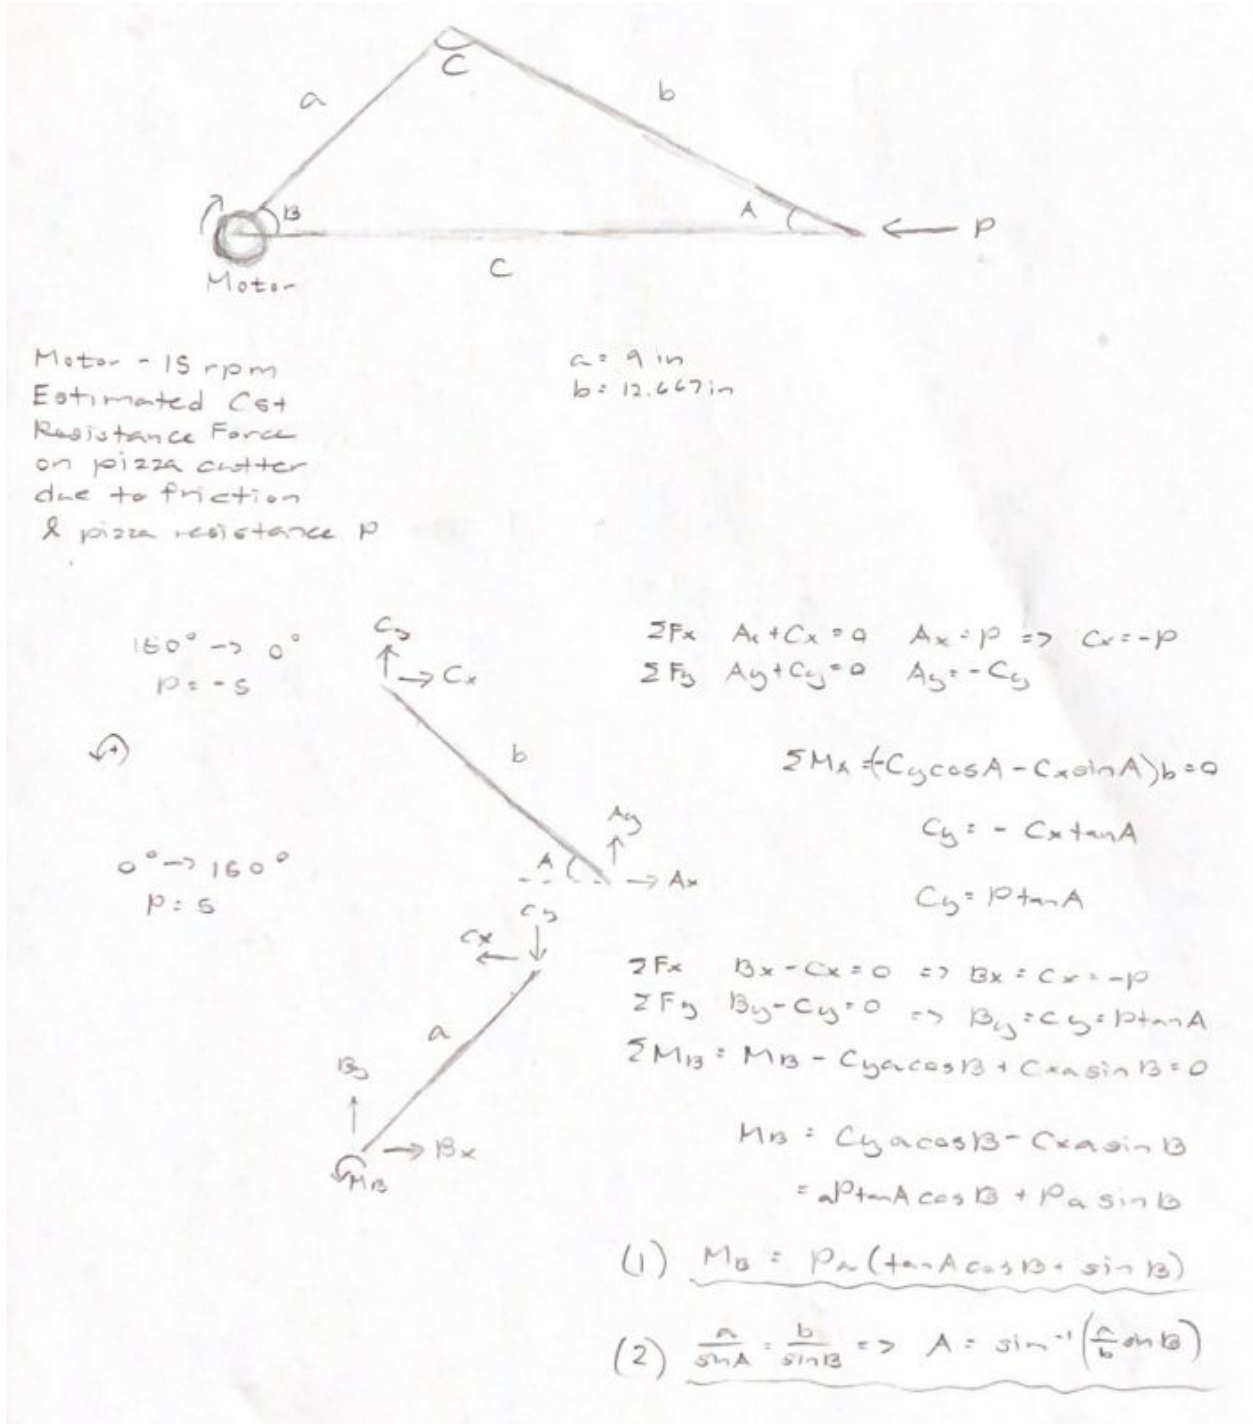 C
a
b
B
A
← P
C
Motor
Motor - 15 rpm
Estimated Cst
Resistance Force
on pizza cutter
due to friction
& pizza resistance P
a = 9 in
b = 12.667 in
180° -> 0°
P = -5
Cy
Cx
b
A
Ay
Ax
ΣFx Ax + Cx = 0 Ax = P => Cx = -P
ΣFy Ay + Cy = 0 Ay = -Cy
ΣMA = (-CycosA - CxsinA)b = 0
Cy = - CxtanA
Cy = PtanA
(+)
0° -> 180°
P = 5
Cy
Cx
a
By
Bx
MB
ΣFx Bx - Cx = 0 => Bx = Cx = -P
ΣFy By - Cy = 0 => By = Cy = PtanA
ΣMB = MB - CyacosB + CxasinB = 0
MB = CyacosB - CxasinB
= aPtanAcosB + PasinB
(1) MB = Pa(tanAcosB + sinB)
(2) a/sinA = b/sinB => A = sin⁻¹(a/b sinB)